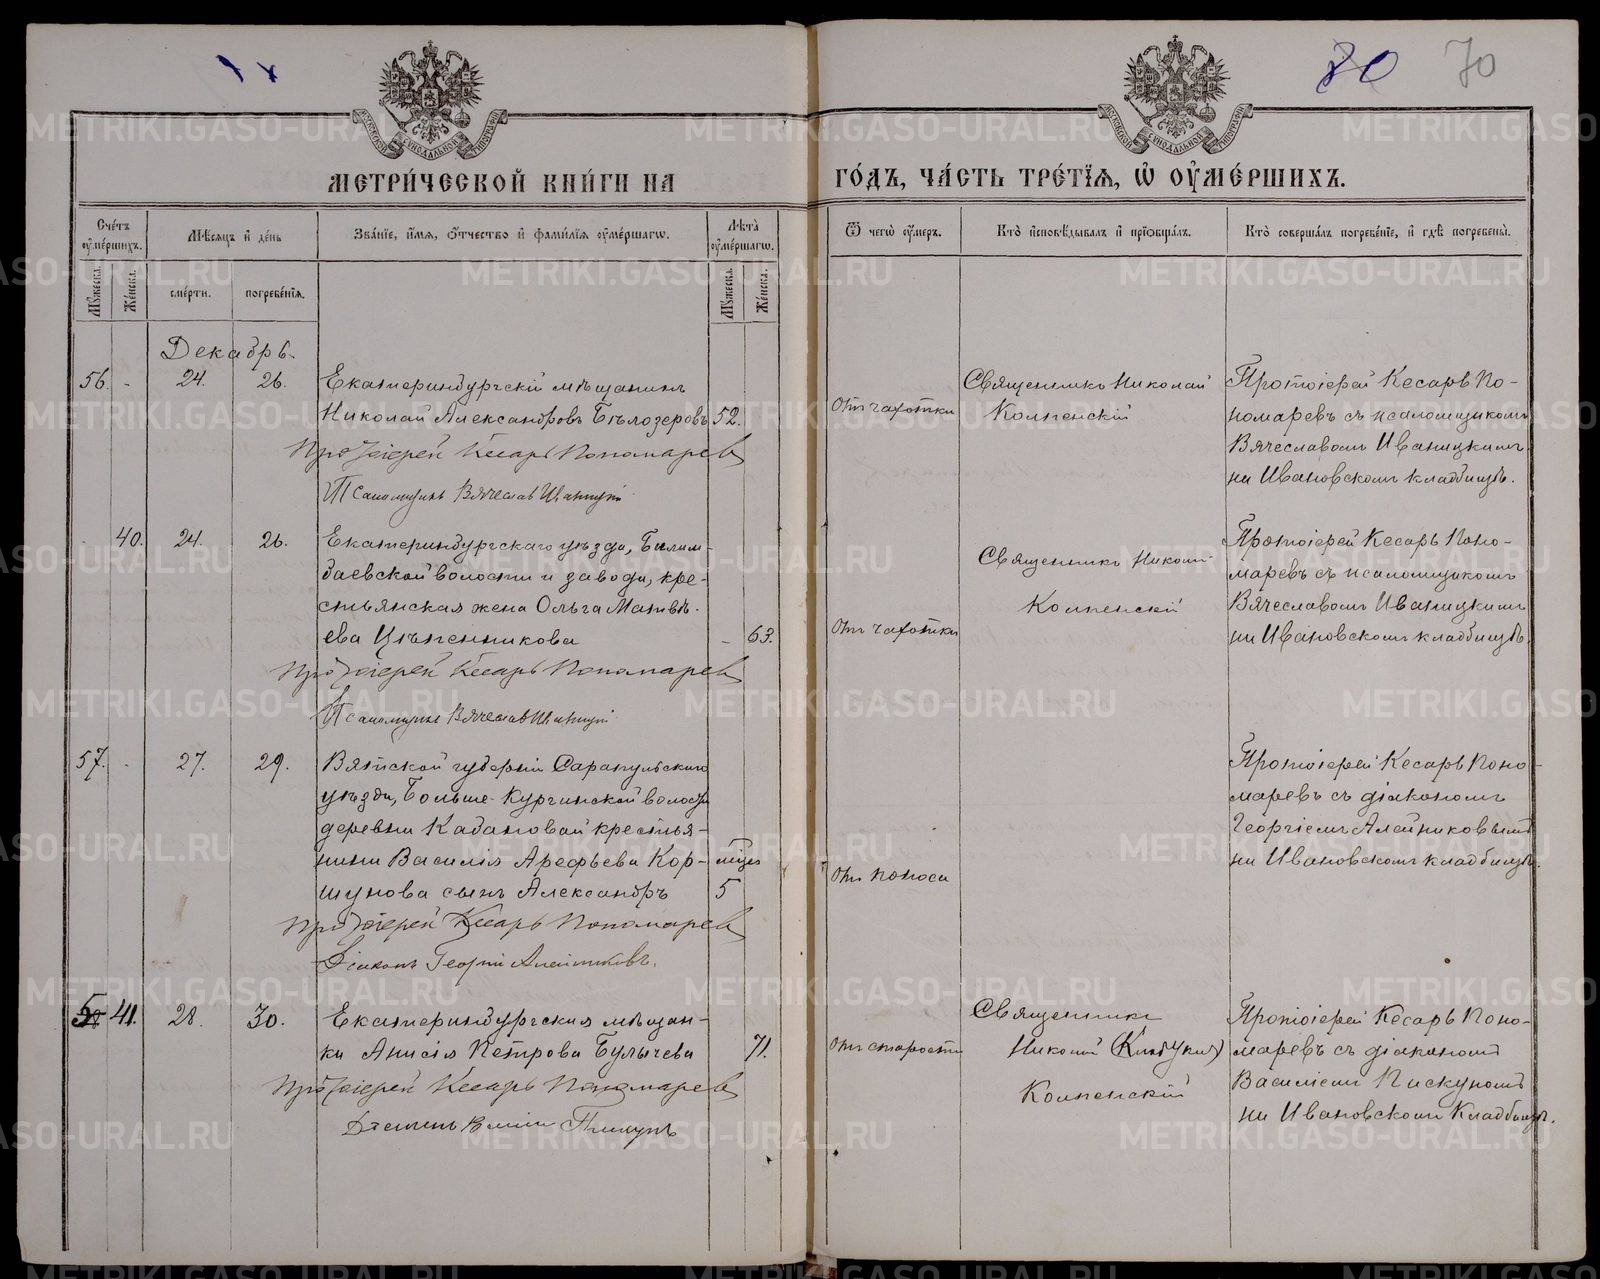 70 70
МЕТРИ́ЧЕСКОЙ КНИ́ГИ НА
ГО́ДЪ, ЧА́СТЬ ТРЕ́ТЇѦ, Ѡ ОУ҆МЕ́РШИХЪ.
Сче́тъ оу҆ме́ршихъ.
Мѣ́сѧцъ и҆ де́нь
Зва́нїе, и҆́мѧ, ѻ҆́тчество и҆ фами́лїѧ оу҆ме́ршагѡ.
Лѣ́та оу҆ме́ршагѡ.
Ѿ чегѡ̀ оу҆́меръ.
Кто̀ и҆сповѣ́дывалъ и҆ прїѡбща́лъ.
Кто̀ соверша́лъ погребе́нїе, и҆ гдѣ̀ погребены̀.
Мꙋ́жеска.
Же́нска.
сме́рти.
погребе́нїѧ.
Мꙋ́жеска.
Же́нска.
Декабрь.
56. - 24. 26.
Екатеринбургскій мѣщанинъ
Николай Александровъ Бѣлозеровъ 52.
Протоіерей Кесарь Пономарев
Псаломщикъ Вячеслав Иваницкій
Отъ чахотки
Священникъ Николай
Колпенскій
Протоіерей Кесарь По-
номаревъ съ псаломщикомъ
Вячеславомъ Иваницкимъ
на Ивановскомъ кладбищѣ.
40. 24. 26.
Екатеринбургскаго уѣзда, Билим-
баевской волости и завода, кре-
стьянская жена Ольга Матвѣ-
ева Цѣпенникова - 63.
Протоіерей Кесарь Пономарев
Псаломщикъ Вячеслав Иваницкій
Отъ чахотки
Священникъ Николай
Колпенскій
Протоіерей Кесарь Поно-
маревъ съ псаломщикомъ
Вячеславомъ Иваницкимъ
на Ивановскомъ кладбищѣ.
57. - 27. 29.
Вятской губерніи Сарапульскаго
уѣзда, Больше-Кургинской волости
деревни Кабановой крестья-
нина Василія Арефьева Кор-
шунова сынъ Александръ
мѣсц
5
Протоіерей Кесарь Пономарев
Діаконъ Георгій Алейниковъ.
Отъ поноса
Протоіерей Кесарь Поно-
маревъ съ діакономъ
Георгіемъ Алейниковымъ
на Ивановскомъ кладбищѣ.
41. 28. 30.
Екатеринбургская мѣщан-
ка Анисія Петрова Булычева 71.
Протоіерей Кесарь Пономарев
Діаконъ Василій Пискунъ
Отъ старости
Священникъ
Николай
Колпенскій
Протоіерей Кесарь Поно-
маревъ съ діакономъ
Василіемъ Пискуномъ
на Ивановскомъ Кладбищѣ.
METRIKI.GASO-URAL.RU